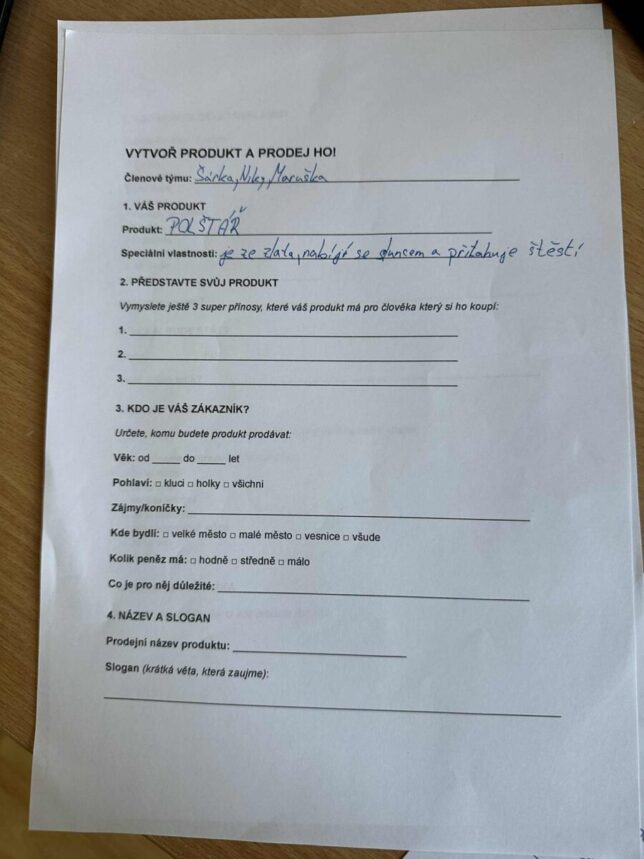 VYTVOŘ PRODUKT A PRODEJ HO!
Členové týmu: Šárka, Niky, Maruška
1. VÁŠ PRODUKT
Produkt: POLŠTÁŘ
Speciální vlastnosti: je ze zlata, nabíjí se sluncem a přitahuje štěstí
2. PŘEDSTAVTE SVŮJ PRODUKT
Vymyslete ještě 3 super přínosy, které váš produkt má pro člověka který si ho koupí:
1.
2.
3.
3. KDO JE VÁŠ ZÁKAZNÍK?
Určete, komu budete produkt prodávat:
Věk: od _____ do _____ let
Pohlaví: □ kluci □ holky □ všichni
Zájmy/koníčky:
Kde bydlí: □ velké město □ malé město □ vesnice □ všude
Kolik peněz má: □ hodně □ středně □ málo
Co je pro něj důležité:
4. NÁZEV A SLOGAN
Prodejní název produktu:
Slogan (krátká věta, která zaujme):